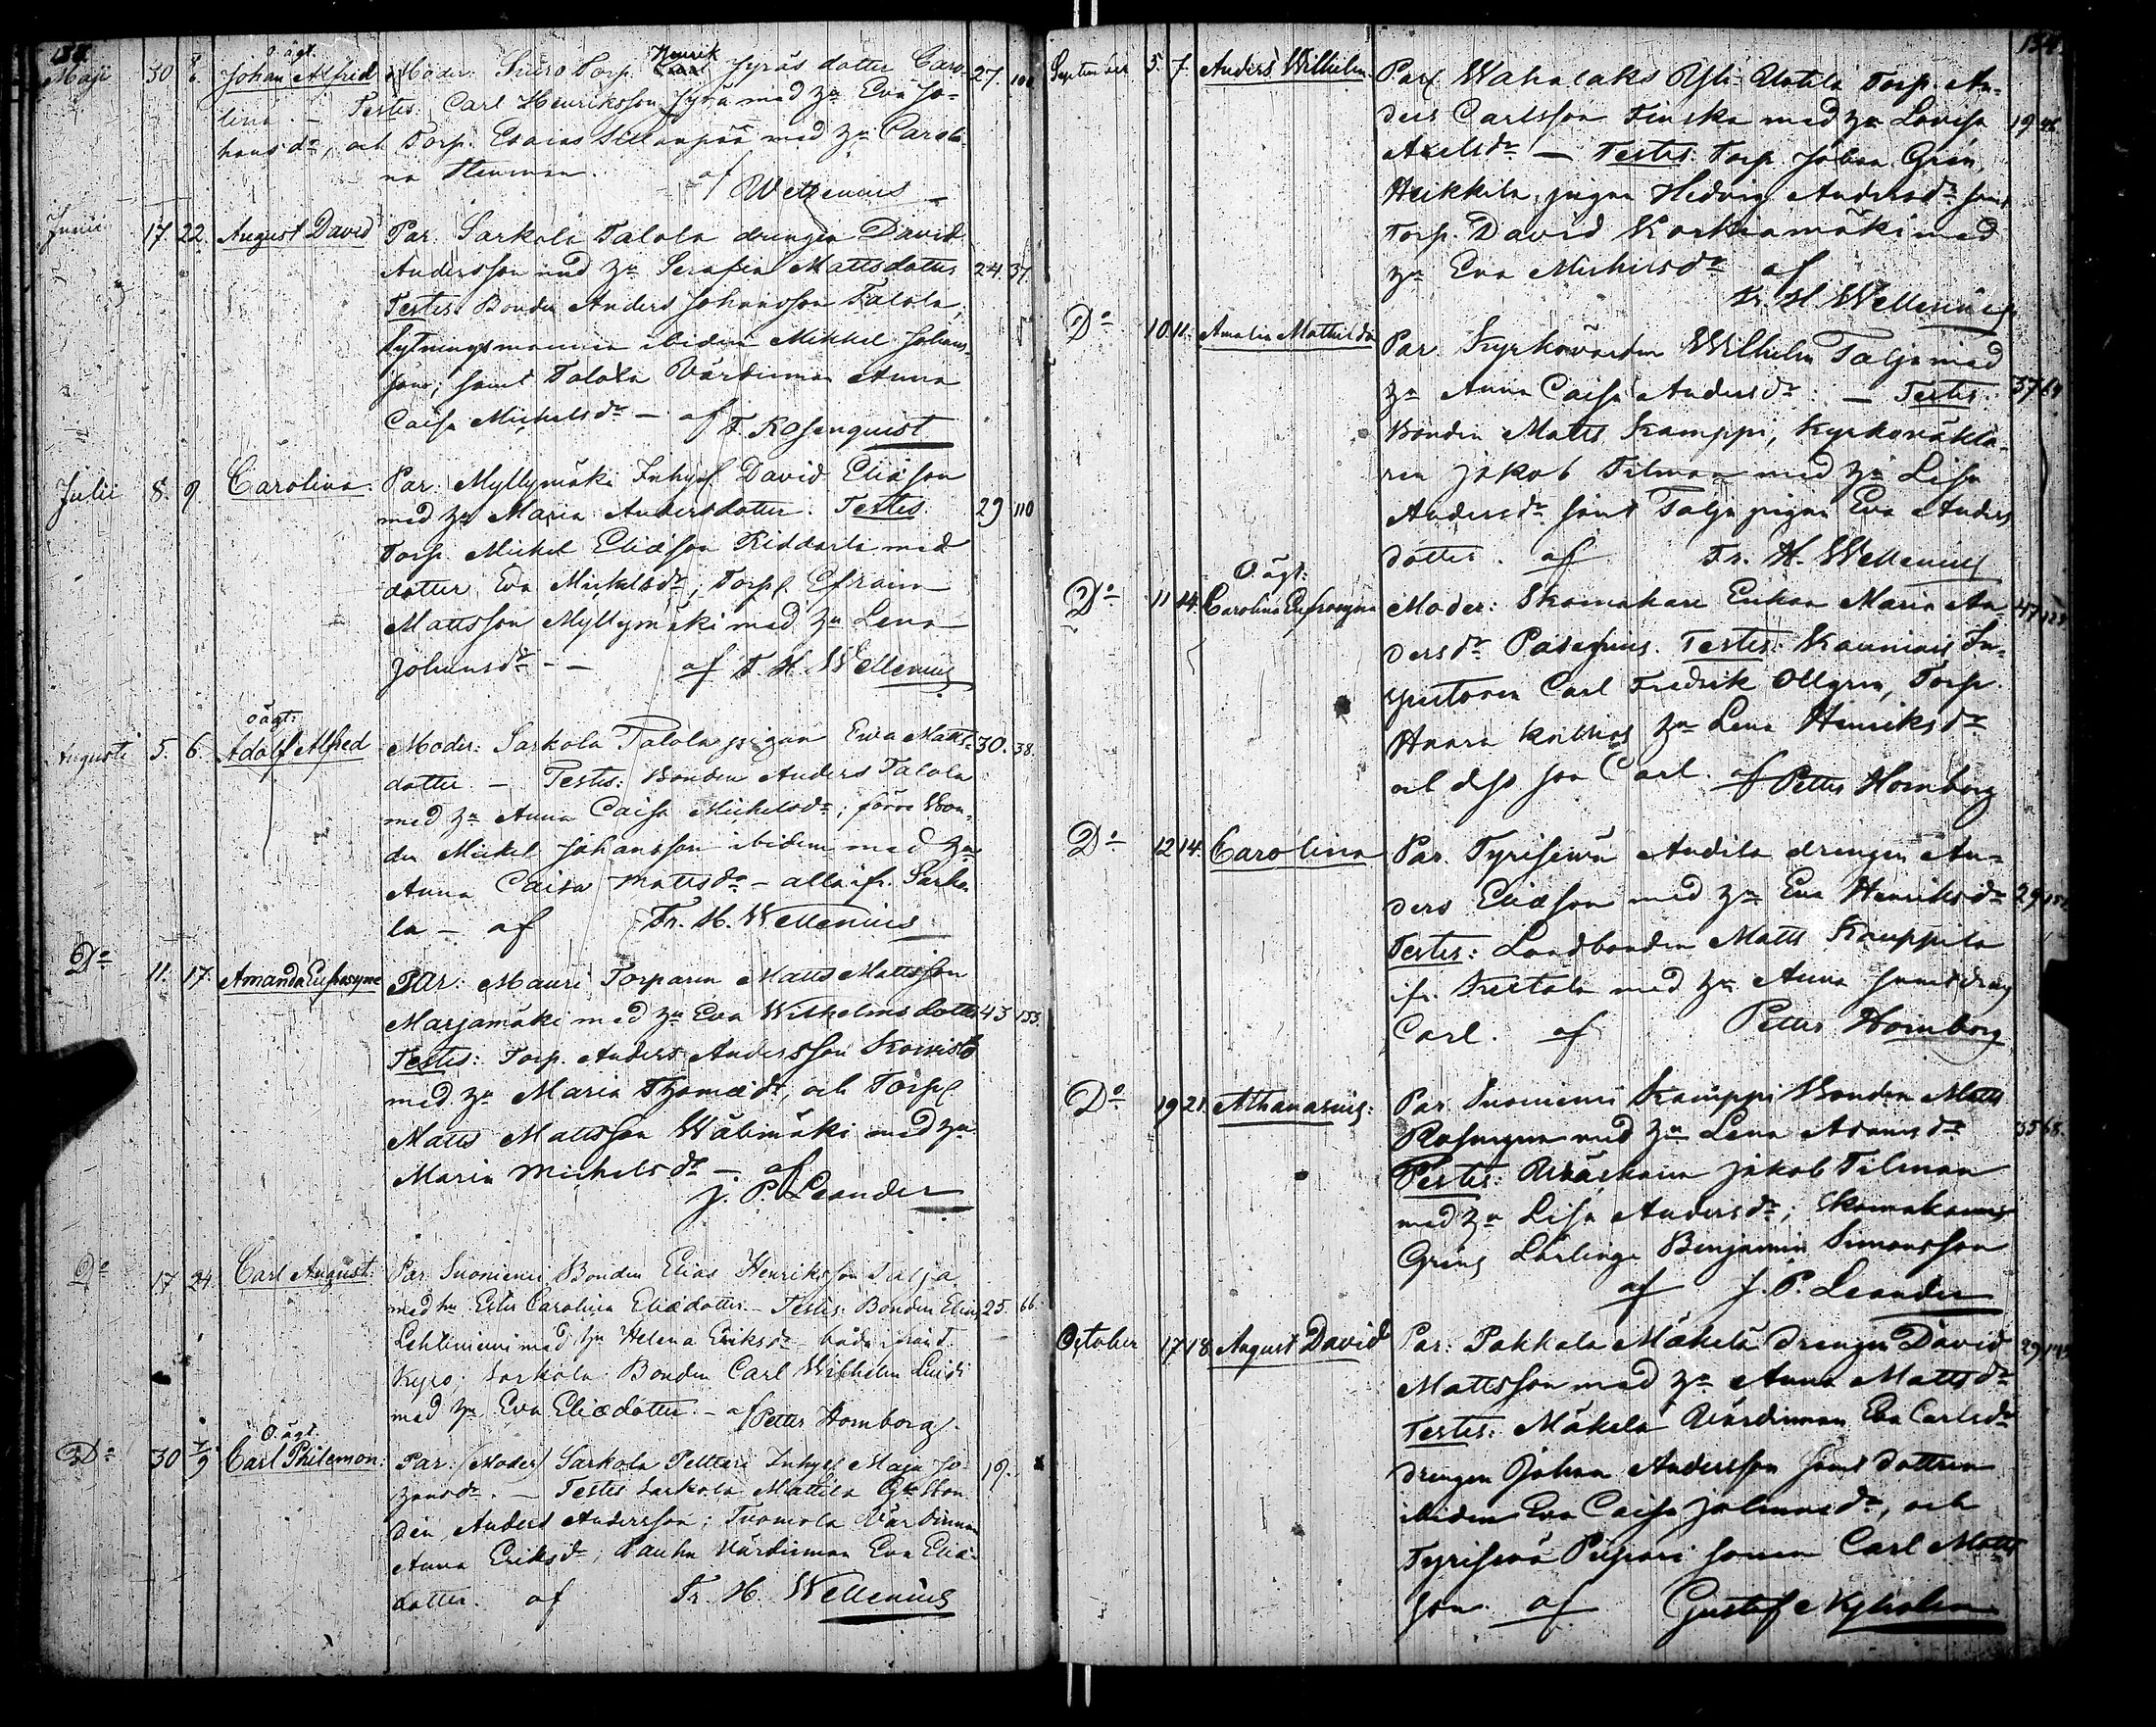 Maji 30 Johan Alfred oägt. Moder: Siuro Torp. Henrik Jyräs dotter Caro- 27.
lina. — Testes Carl Henriksson Jyrä med hu Eva Jo-
hansdr, och Torp. Esaias med hu Caroli-
na
af Wellenius
Junii 17 22. August David Par: Sarkola Talola drengen David
Andersson med hu Serafia Mattsdotter 24. 37.
Testes Bonden Anders Johansson Talola,
sytningsmannen ibidem Mikkel Johans-
son; samt Talola Värdinnan Anna
Caisa Michelsdr — af F. Rosenquist
Julii 8. 9. Carolina. Par: Myllymäki Inhys. David Eliasson
med hu Maria Andersdotter. Testes. 29 110
Torp. Mickel Eliæson Riddarla med
dotter Eva Mickelsdr; Torp. Efraim
Mattsson Myllymäki med hu Lena
Johansdr - — af F. H. Wellenius
Augusti 5. 6. oägt: Adolf Alfred Moder: Sarkola Talola pigan Ewa Matts- 30. 38.
dotter. — Testes: Bonden Anders Talola
med hu Anna Caisa Mickelsdr; förre Bon-
den Mickel Johansson ibidem med hu
Anna Caisa Mattsdr — alla ifr. Sarko-
la — af Fr. H. Wellenius
Do 11. 17. Amanda Eufrosyne Par: Mauri Torparen Matts Mattsson
Marjamäki med hu Eva Wilhelmsdotter 43 153.
Testes: Torp. Anders Andersson Koivisto
med hu Maria Thomædr, och Torp.
Matts Mattsson Wälimäki med hu
Maria Michelsdr — af
J. P. Leander
Do 17. 24. Carl August: Par: Suoniemi Bonden Elias Henriksson Talja
med hu Ester Carolina Eliædotter. — Testes: Bonden Elias 25. 66.
Lehtiniemi med hu Helena Eriksdr — båda från
Kyro; Sarkola Bonden Carl Wilhelm
med hu Eva Eliædotter. — af Petter Homborg.
Do 30 oägt. Carl Philemon: Par: (Moder) Sarkola Pelttari Inhys. Maja Jo- 19.
hansdr. — Testes Sarkola Mattila Bon-
den Anders Andersson; Tuomola Värdinnan
Anna Eriksdr; Pauhu Värdinnan Eva Eliæ-
dotter. af Fr. H. Wellenius
154.
September 5. 7. Anders Wilhelm. Par. Wahalaks Yli-Uotila Torp. An-
ders Carlsson Finska med hu Lovisa 19
Axelsdr — Testes. Torp. Johan Grön,
Heikkilä pigan Hedvig Andersdr samt
Torp. David Korkiamäki med
hu Eva Mickelsdr af
Fr. H. Wellenius
Do 10 11. Amalia Mathilda Par. Kyrkovärden Wilhelm Talja med
hu Anna Caisa Andersdr: — Testes: 37 64
Bonden Matts Kamppi, Kyrkoväkta-
ren Jakob Tilman med hu Lisa
Andersdr samt Talja pigan Eva Anders
dotter. af Fr. H. Wellenius
Do 11 14. Oägt: Carolina Eufrosyna Moder: Skomakare Enkan Maria An- 47
dersdr Padenius. Testes: Kauniais In-
spectoren Carl Fredrik Ollgren, Torp.
Haara hu Lena Henriksdr
och dess son Carl. af Petter Homborg
Do 12 14. Carolina Par. Tyrisewä Audila drengen An-
ders Eliæson med hu Eva Henriksdr 29
Testes: Landbonden Matts Kauppila
ifr. med hu Anna samt dreng
Carl. af Petter Homborg
Do 19 21. Athanasius: Par Suoniemi Kamppi Bonden Matts
Rosengren med hu Lena Adamsdr 35 68.
Testes: Jakob Tilman
med hu Lisa Andersdr; Skomakaren
Gröns Lärlinge Benjamin Simonsson
af J. P. Leander
October 17 18 August David Par: Pakkala Mäkelä Drengen David 29
Mattsson med hu Anna Mattsdr
Testes: Mäkelä Värdinnan Eva Carlsdr
drengen Johan Andersson samt dottren
ibidem Eva Caisa Johansdr, och
Tyrisewä Piipari sonen Carl Matts
son. af Gustaf Nyholm